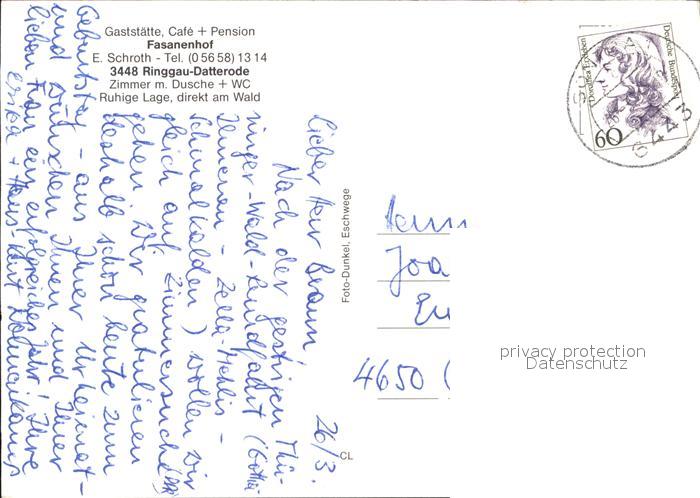 Gaststätte, Café + Pension
Fasanenhof
E. Schroth - Tel. (0 56 58) 13 14
3448 Ringgau-Datterode
Zimmer m. Dusche + WC
Ruhige Lage, direkt am Wald
26/3.
Lieber Herr Braun
Nach der gestrigen Thü-
ringer-Wald-Rundfahrt (Gotha
Ilmenau - Zella-Mehlis -
Schmalkalden) wollen wir
gleich auf Zimmersuche
gehen. Wir gratulieren
deshalb schon heute zum
Geburtstag - aus Ihrer Urheimat -
und wünschen Ihnen und Ihrer
lieben Frau ein erfolgreiches Jahr! Ihre
Erika + Hans Kurt
Foto-Dunkel, Eschwege
CL
Dorothea Erxleben
Deutsche Bundespost
60
3443
Joa
4650 (
privacy protection
Datenschutz